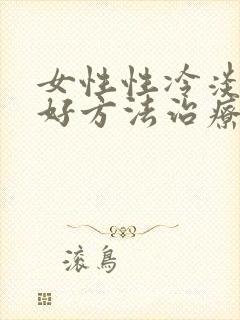 女性性冷淡
好方法治疗
滚鸟